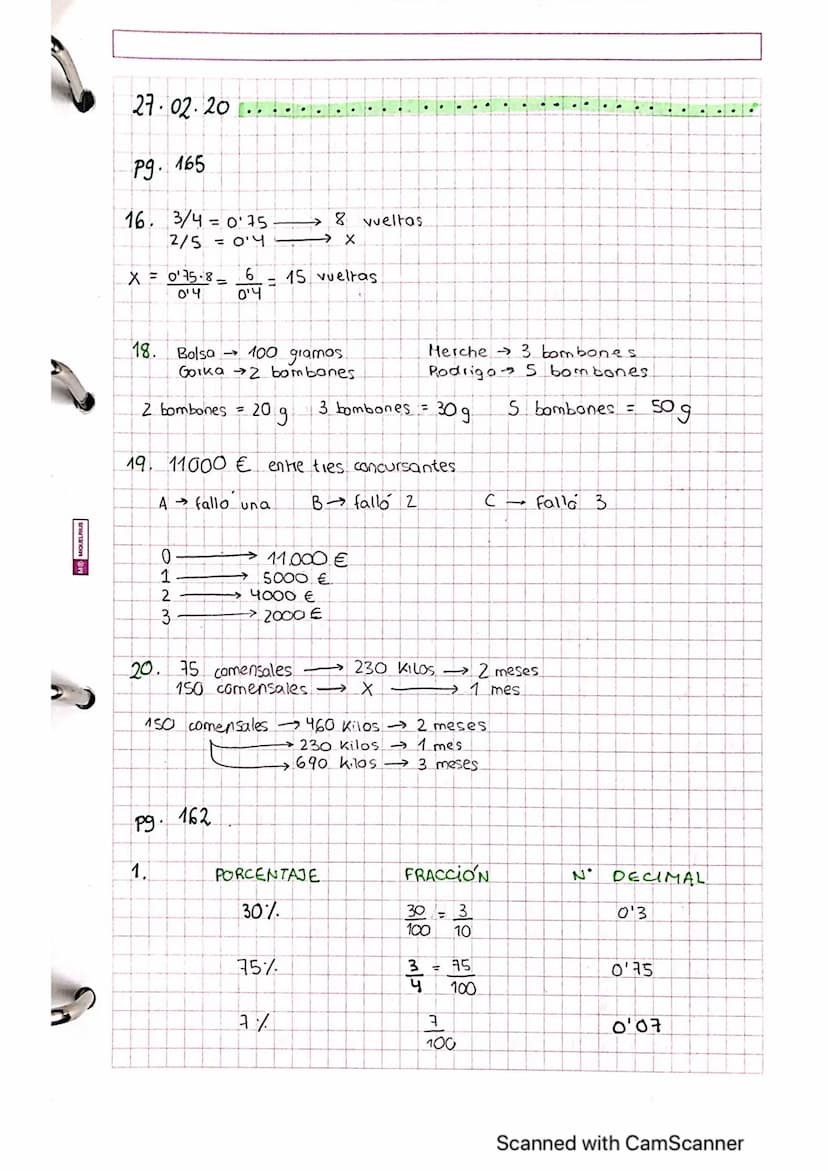 27.02.20
pg. 165
16. 3/4 = 0'75 → 8 vueltas
2/5 = 0'4 → x
X = 0'75·8/0'4 = 6/0'4 = 15 vueltas
18. Bolsa → 100 gramos Merche → 3 bombones
Gorka → 2 bombones Rodrigo → 5 bombones
2 bombones = 20 g 3 bombones = 30 g 5 bombones = 50 g
19. 11000 € entre tres concursantes
A → falló una B → falló 2 C → Falló 3
0 → 11.000 €
1 → 5000 €
2 → 4000 €
3 → 2000 €
20. 75 comensales → 230 Kilos → 2 meses
150 comensales → X → 1 mes
150 comensales → 460 Kilos → 2 meses
→ 230 Kilos → 1 mes
→ 690 kilos → 3 meses
pg. 162
1. PORCENTAJE FRACCIÓN Nº DECIMAL
30% 30/100 = 3/10 0'3
75% 3/4 = 75/100 0'75
7% 7/100 0'07
MIQUELRIUS
Scanned with CamScanner